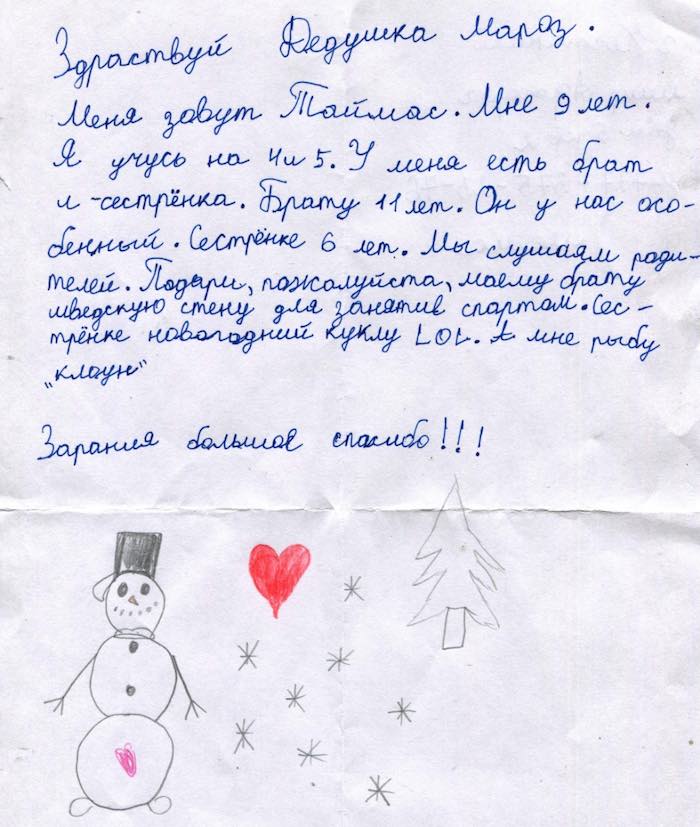 Здраствуй Дедушка Мароз.
Меня завут Таймас. Мне 9 лет.
Я учусь на 4 и 5. У меня есть брат
и сестрёнка. Брату 11 лет. Он у нас осо-
бенный. Сестрёнке 6 лет. Мы слушаям ради-
телей. Подари, пожалуйста, моему брату
шведскую стену для занятив спартом. Сес-
трёнке новогодний куклу LOL. А мне рыбу
„клоун"
Зарания большое спасибо!!!